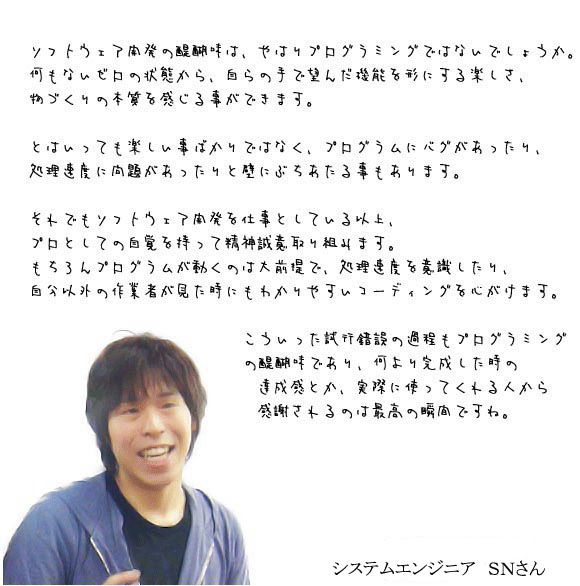 ソフトウェア開発の醍醐味は、やはりプログラミングではないでしょうか。
何もないゼロの状態から、自らの手で望んだ機能を形にする楽しさ、
物づくりの本質を感じる事ができます。
とはいっても楽しい事ばかりではなく、プログラムにバグがあったり、
処理速度に問題があったりと壁にぶちあたる事もあります。
それでもソフトウェア開発を仕事としている以上、
プロとしての自覚を持って精神誠意取り組みます。
もちろんプログラムが動くのは大前提で、処理速度を意識したり、
自分以外の作業者が見た時にもわかりやすいコーディングを心がけます。
こういった試行錯誤の過程もプログラミング
の醍醐味であり、何より完成した時の
達成感とか、実際に使ってくれる人から
感謝されるのは最高の瞬間ですね。
システムエンジニア SNさん